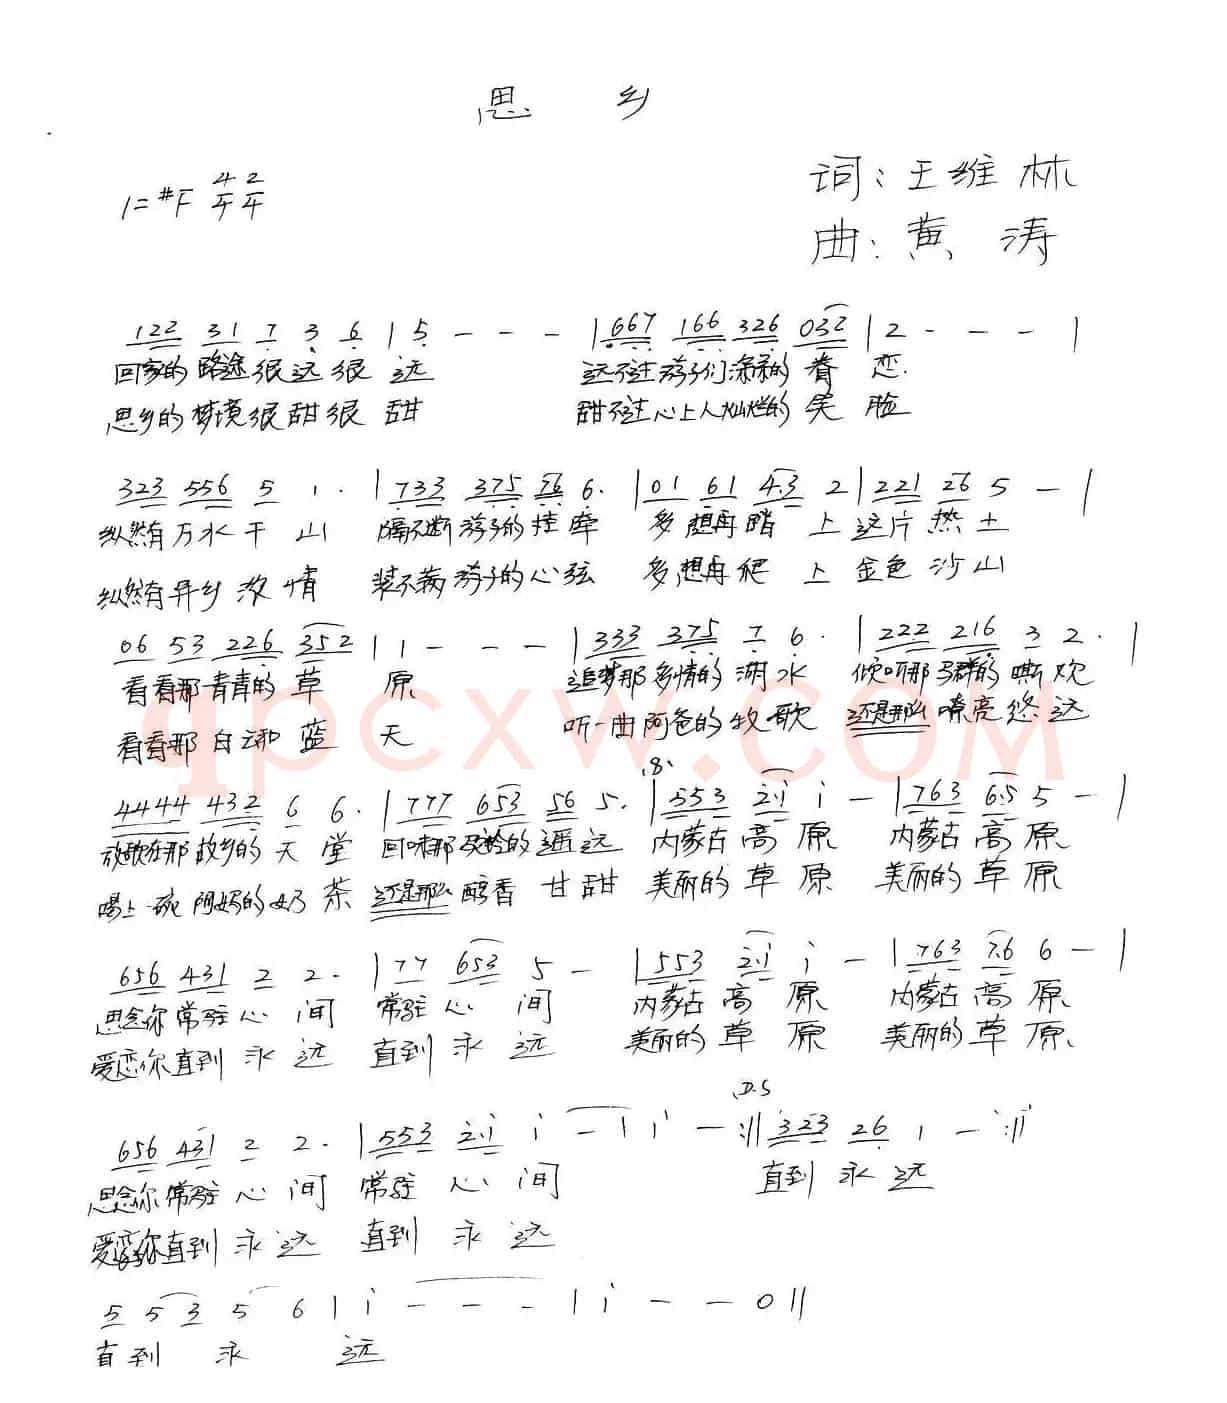 思 乡
词:王维林
1=#F 4/4 2/4
曲:黄 涛
122 31 7 3 6 | 5 - - - | 667 166 326 032 | 2 - - - |
回家的路途很远很 远 远不过游子们深深的眷 恋.
思乡的梦境很甜很 甜 甜不过心上人灿烂的笑 脸
323 556 5 1. | 733 375 76 6. | 01 61 4.3 2 | 221 26 5 - |
纵然有万水千 山 隔不断游子的挂 牵 多想再踏 上 这片 热 土
纵然有异乡浓 情 装不满游子的心弦 多想再爬 上 金色 沙山
06 53 226 352 | 1 - - - | 333 375 7 6. | 222 216 3 2. |
看看那青青的草 原 追梦那多情的湖水 倾听那马群的嘶欢
看看那白云和蓝 天 听一曲阿爸的牧歌 还是那么嘹亮悠远
𝄋
4444 432 6 6. | 777 653 56 5. | 553 2.1 1 - | 763 6.5 5 - |
放歌在那故乡的天 堂 回味那驼铃的遥远 内蒙古高 原 内蒙古高 原
喝上一碗阿妈的奶茶 还是那么醇香甘甜 美丽的草 原 美丽的草 原
656 431 2 2. | 77 653 5 - | 553 2.1 1 - | 763 7.6 6 - |
思念你常驻心 间 常驻心 间 内蒙古高 原 内蒙古高 原
爱恋你直到永 远 直到永 远 美丽的草 原 美丽的草 原
D.S
656 431 2 2. | 553 2.1 1 - | 1 - :|| 323 26 1 - :||
思念你常驻心 间 常驻心 间 直到永 远
爱恋你直到永 远 直到永 远
5 5 3 5 6 | 1 - - - | 1 - - 0 ||
直到 永 远
qpcxw.com